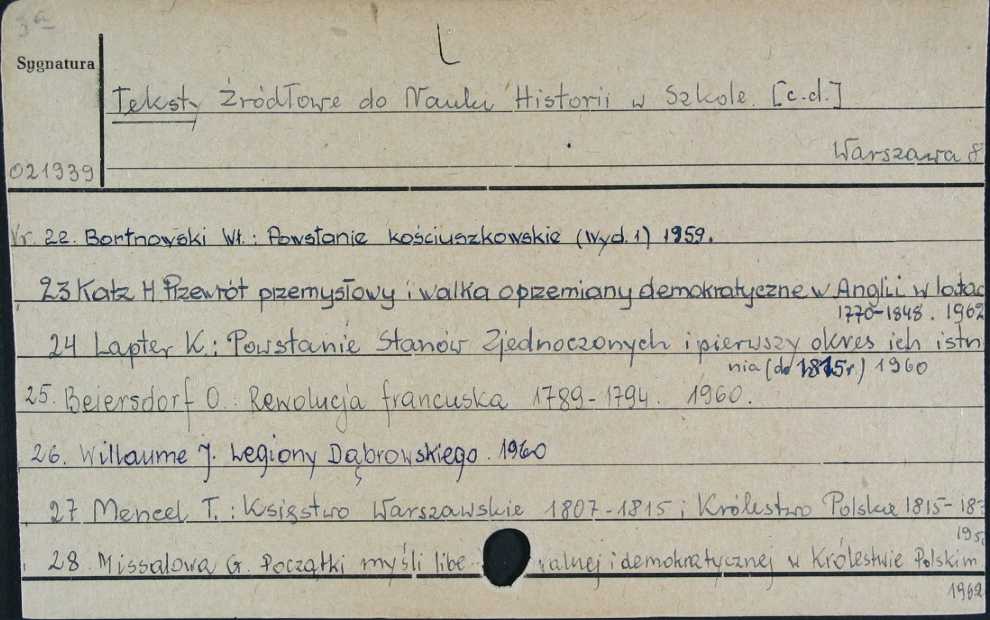 Sygnatura
Teksty Źródłowe do Nauki Historii w Szkole. [c.d.]
Warszawa 8
021939
Nr. 22. Bortnowski Wł.: Powstanie kościuszkowskie (Wyd. 1) 1959.
23 Katz H Przewrót przemysłowy i walka o przemiany demokratyczne w Anglii w latac
1770-1848. 1962
24 Lapter K.: Powstanie Stanów Zjednoczonych i pierwszy okres ich istn
nia (do 1815r.) 1960
25. Beiersdorf O.: Rewolucja francuska 1789-1794. 1960.
26. Willaume J. Legiony Dąbrowskiego. 1960
27 Mencel T.: Księstwo Warszawskie 1807-1815 i Królestwo Polskie 1815-18
195
28. Missalowa G. Początki myśli libe ralnej i demokratycznej w Królestwie Polskim
1962